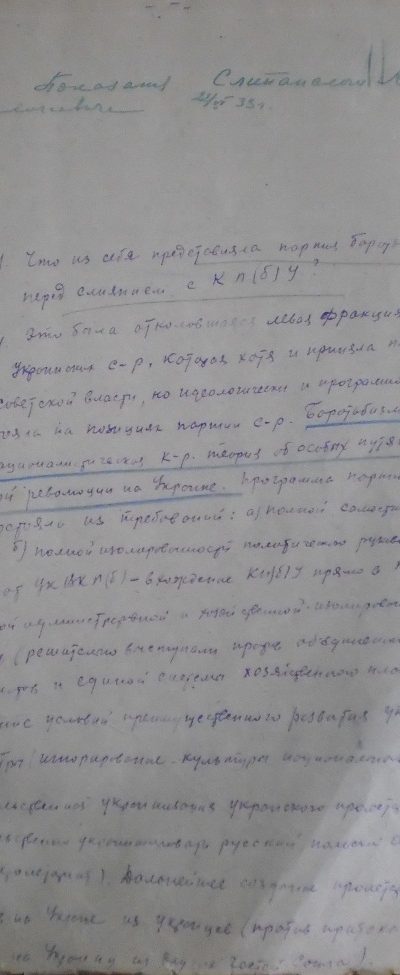 Показания Слипанского
24/VI 33 г.
Что из себя представляла партия Борот
перед слиянием с КП(б)У?
Это была отколовшаяся левая фракция
украинских с-р, которая хотя и приняла
советской власти, но идеологически и програм
на позициях партии с-р. Боротьбизм
ационалистическая к-р. теория об особых путя
ой революции на Украине. Программа партии
остояла из требований: а) полной самост
б) полной изолированности политического руков
от ЦК ВКП(б) – вхождение КП(б)У прямо в
ой административной и хозяйственной изолирован
(решительно выступали против объединения
и единой системы хозяйственного
условий преимущественного развития ук
(игнорирование культуры национальн
украинизация украинского пролета
русской
Дальнейшее создание пролета
на Украине из украинцев (против
на Украину из других частей Союза).